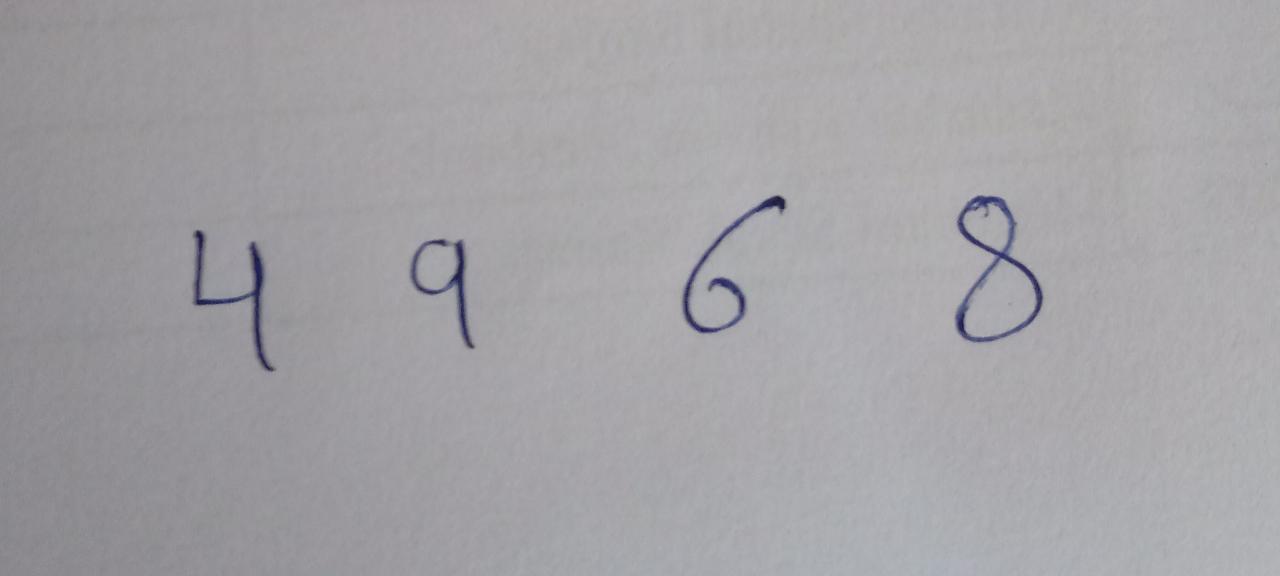 4 9 6 8